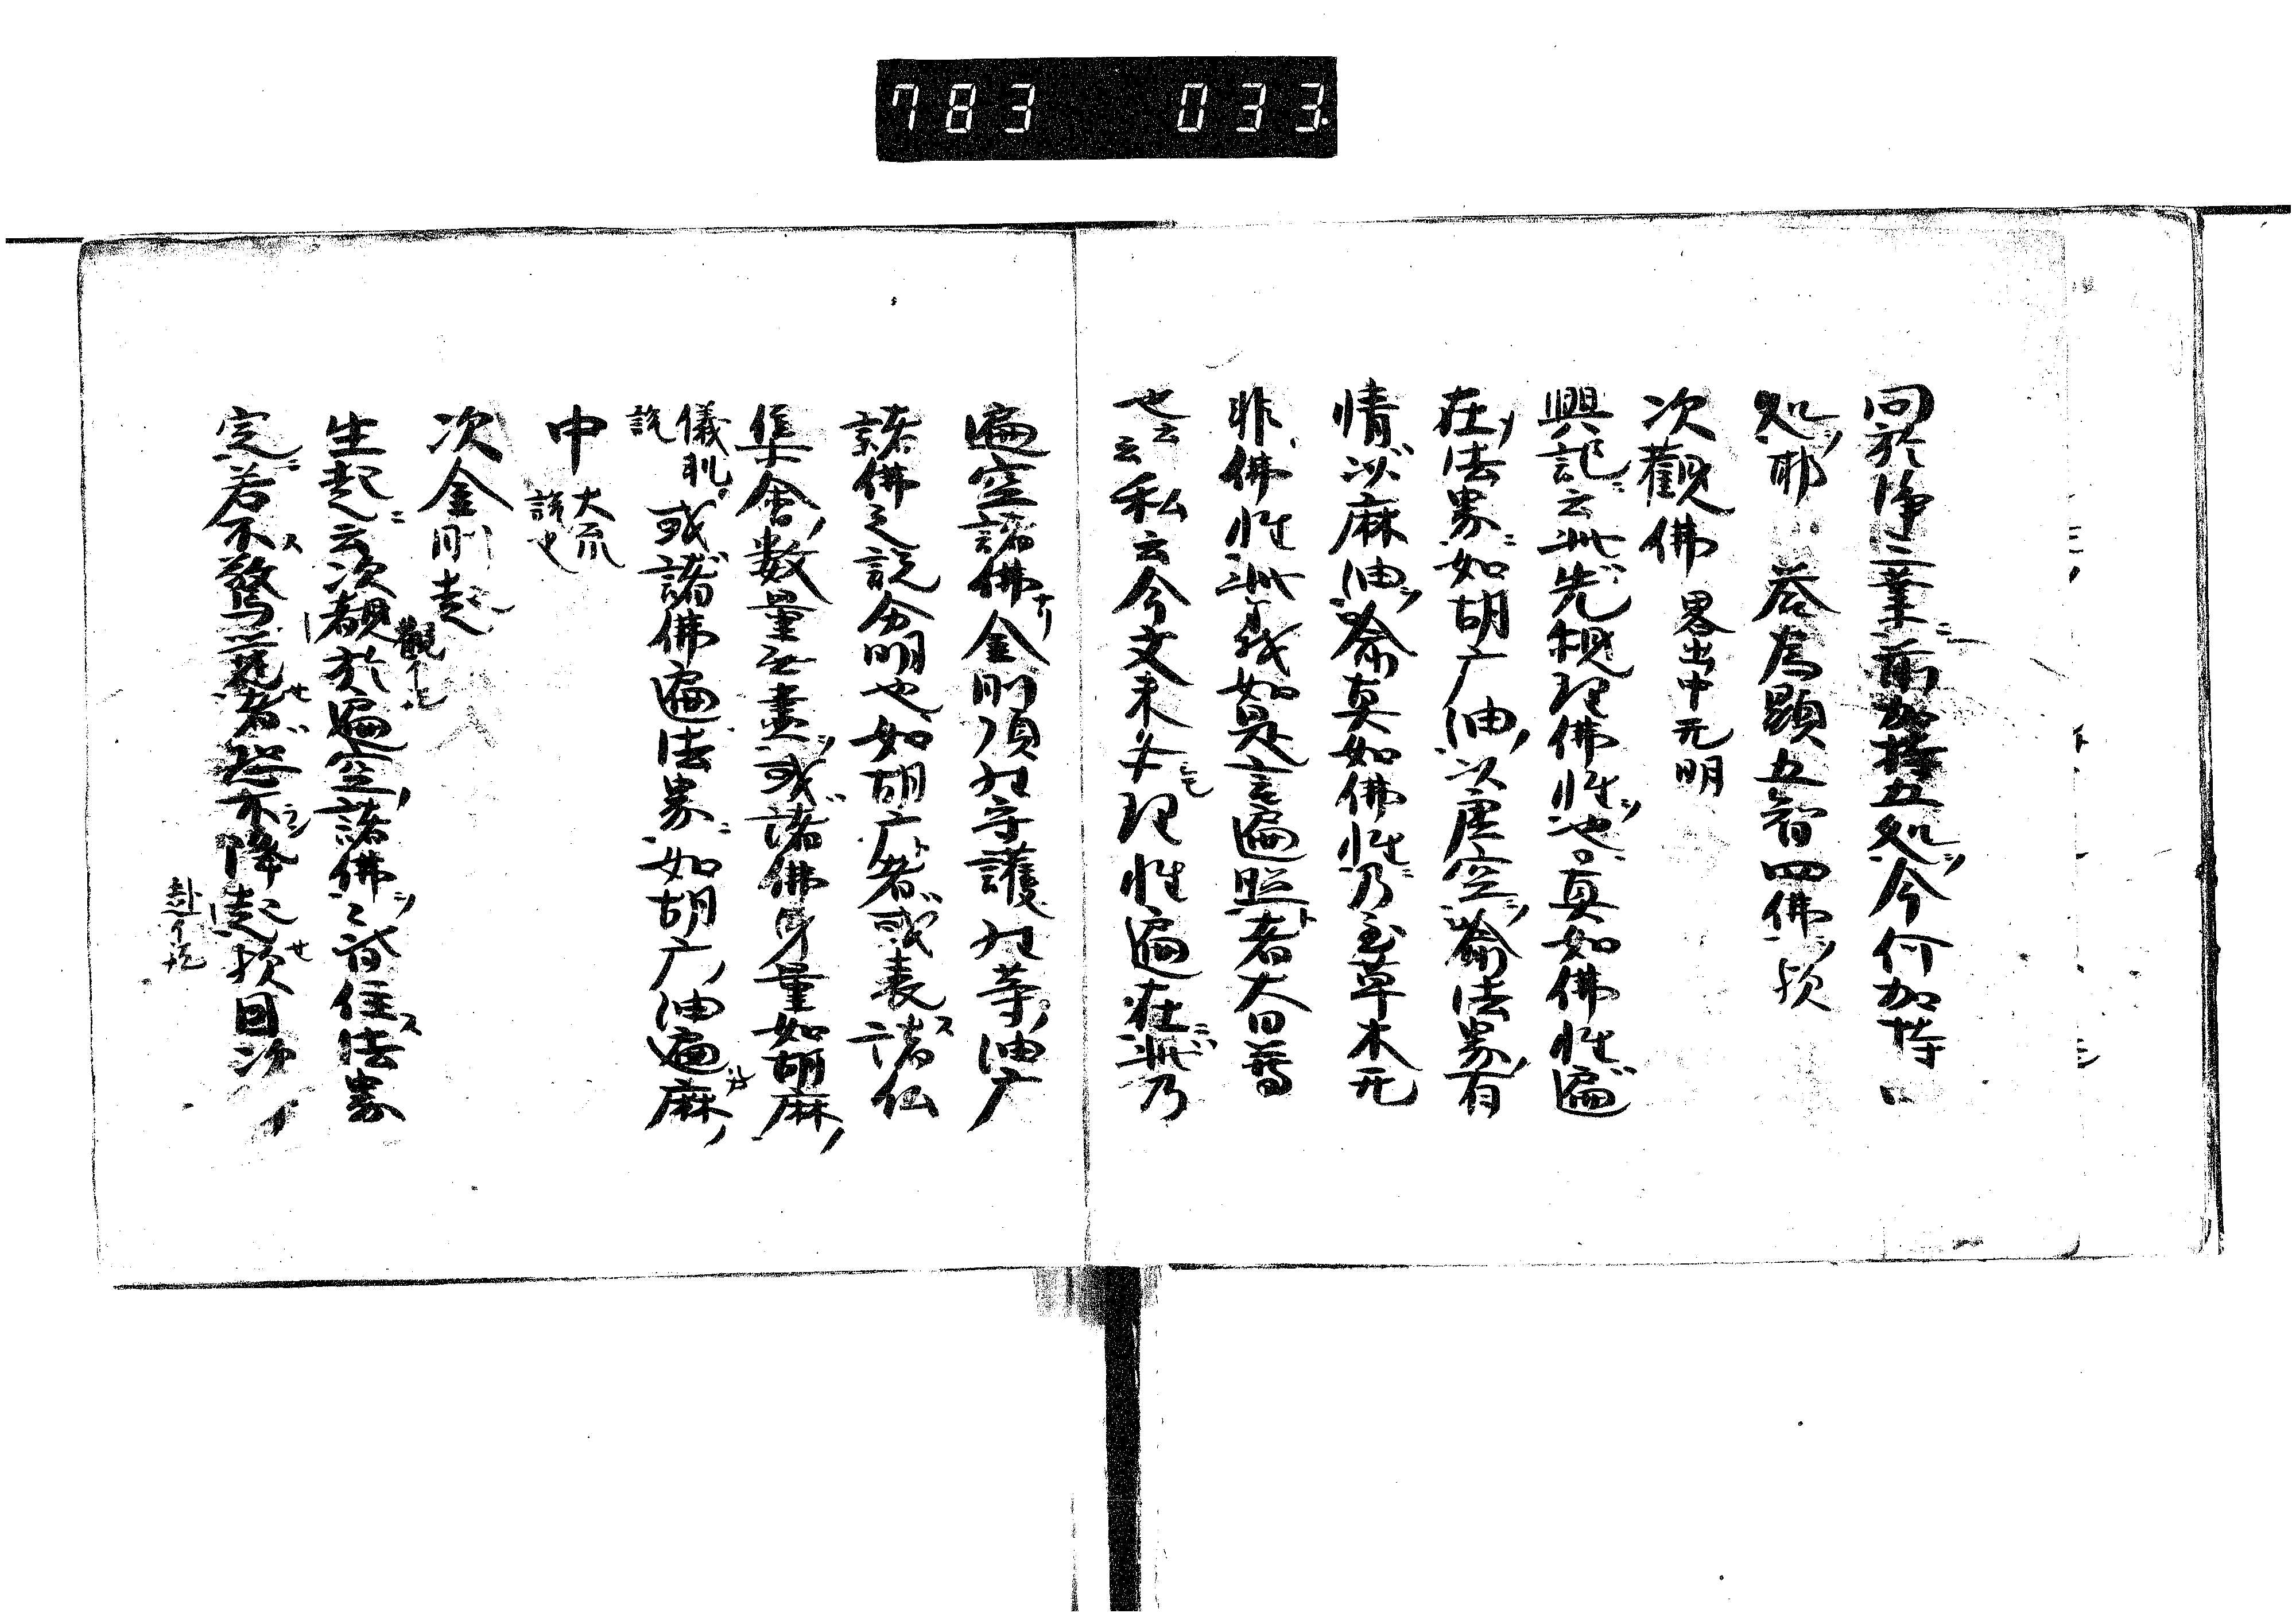 783 033
問於浄三業前加持五処今何加持
処耶 答為顕五智四佛歟
次觀佛 畧出中无明
興記云此先観理佛性也真如佛性遍
在法界如胡广油以虚空喩法界有
情以麻油喩真如佛性乃至草木无
非佛性此等如是言遍照者大日尊
也云云私云今文未必理性遍在此乃
遍空諸佛金剛頂 守護 等油广
諸佛之説分明也如胡广者或表諸仏
集會数量无盡或諸佛身量如胡麻
儀軌説 或諸佛遍法界如胡广油遍麻
中 大疏説也
次金剛起
生起云次觀於遍空諸佛々皆住法界
定若不驚覚者恐不降赴歟因次